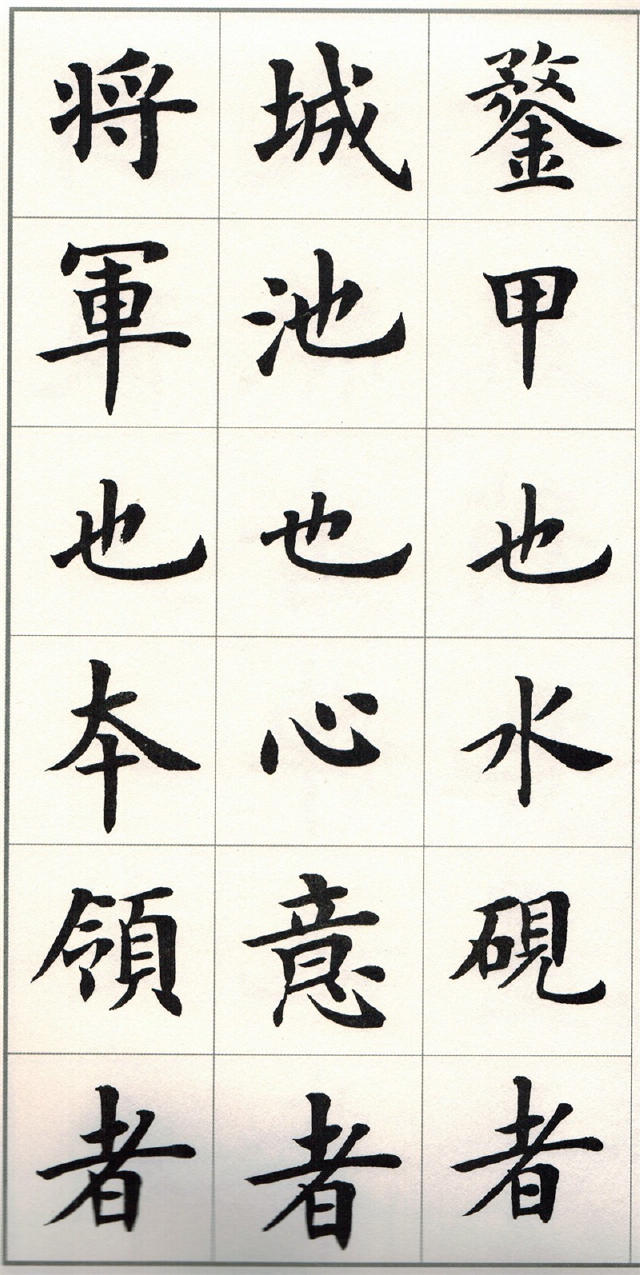 鍪甲也水硯者
城池也心意者
将軍也本領者